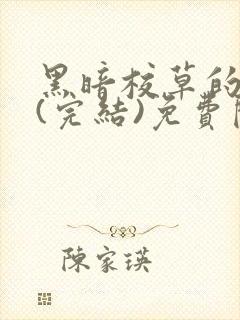 黑暗校草的
(完結)免費
陳家瑛